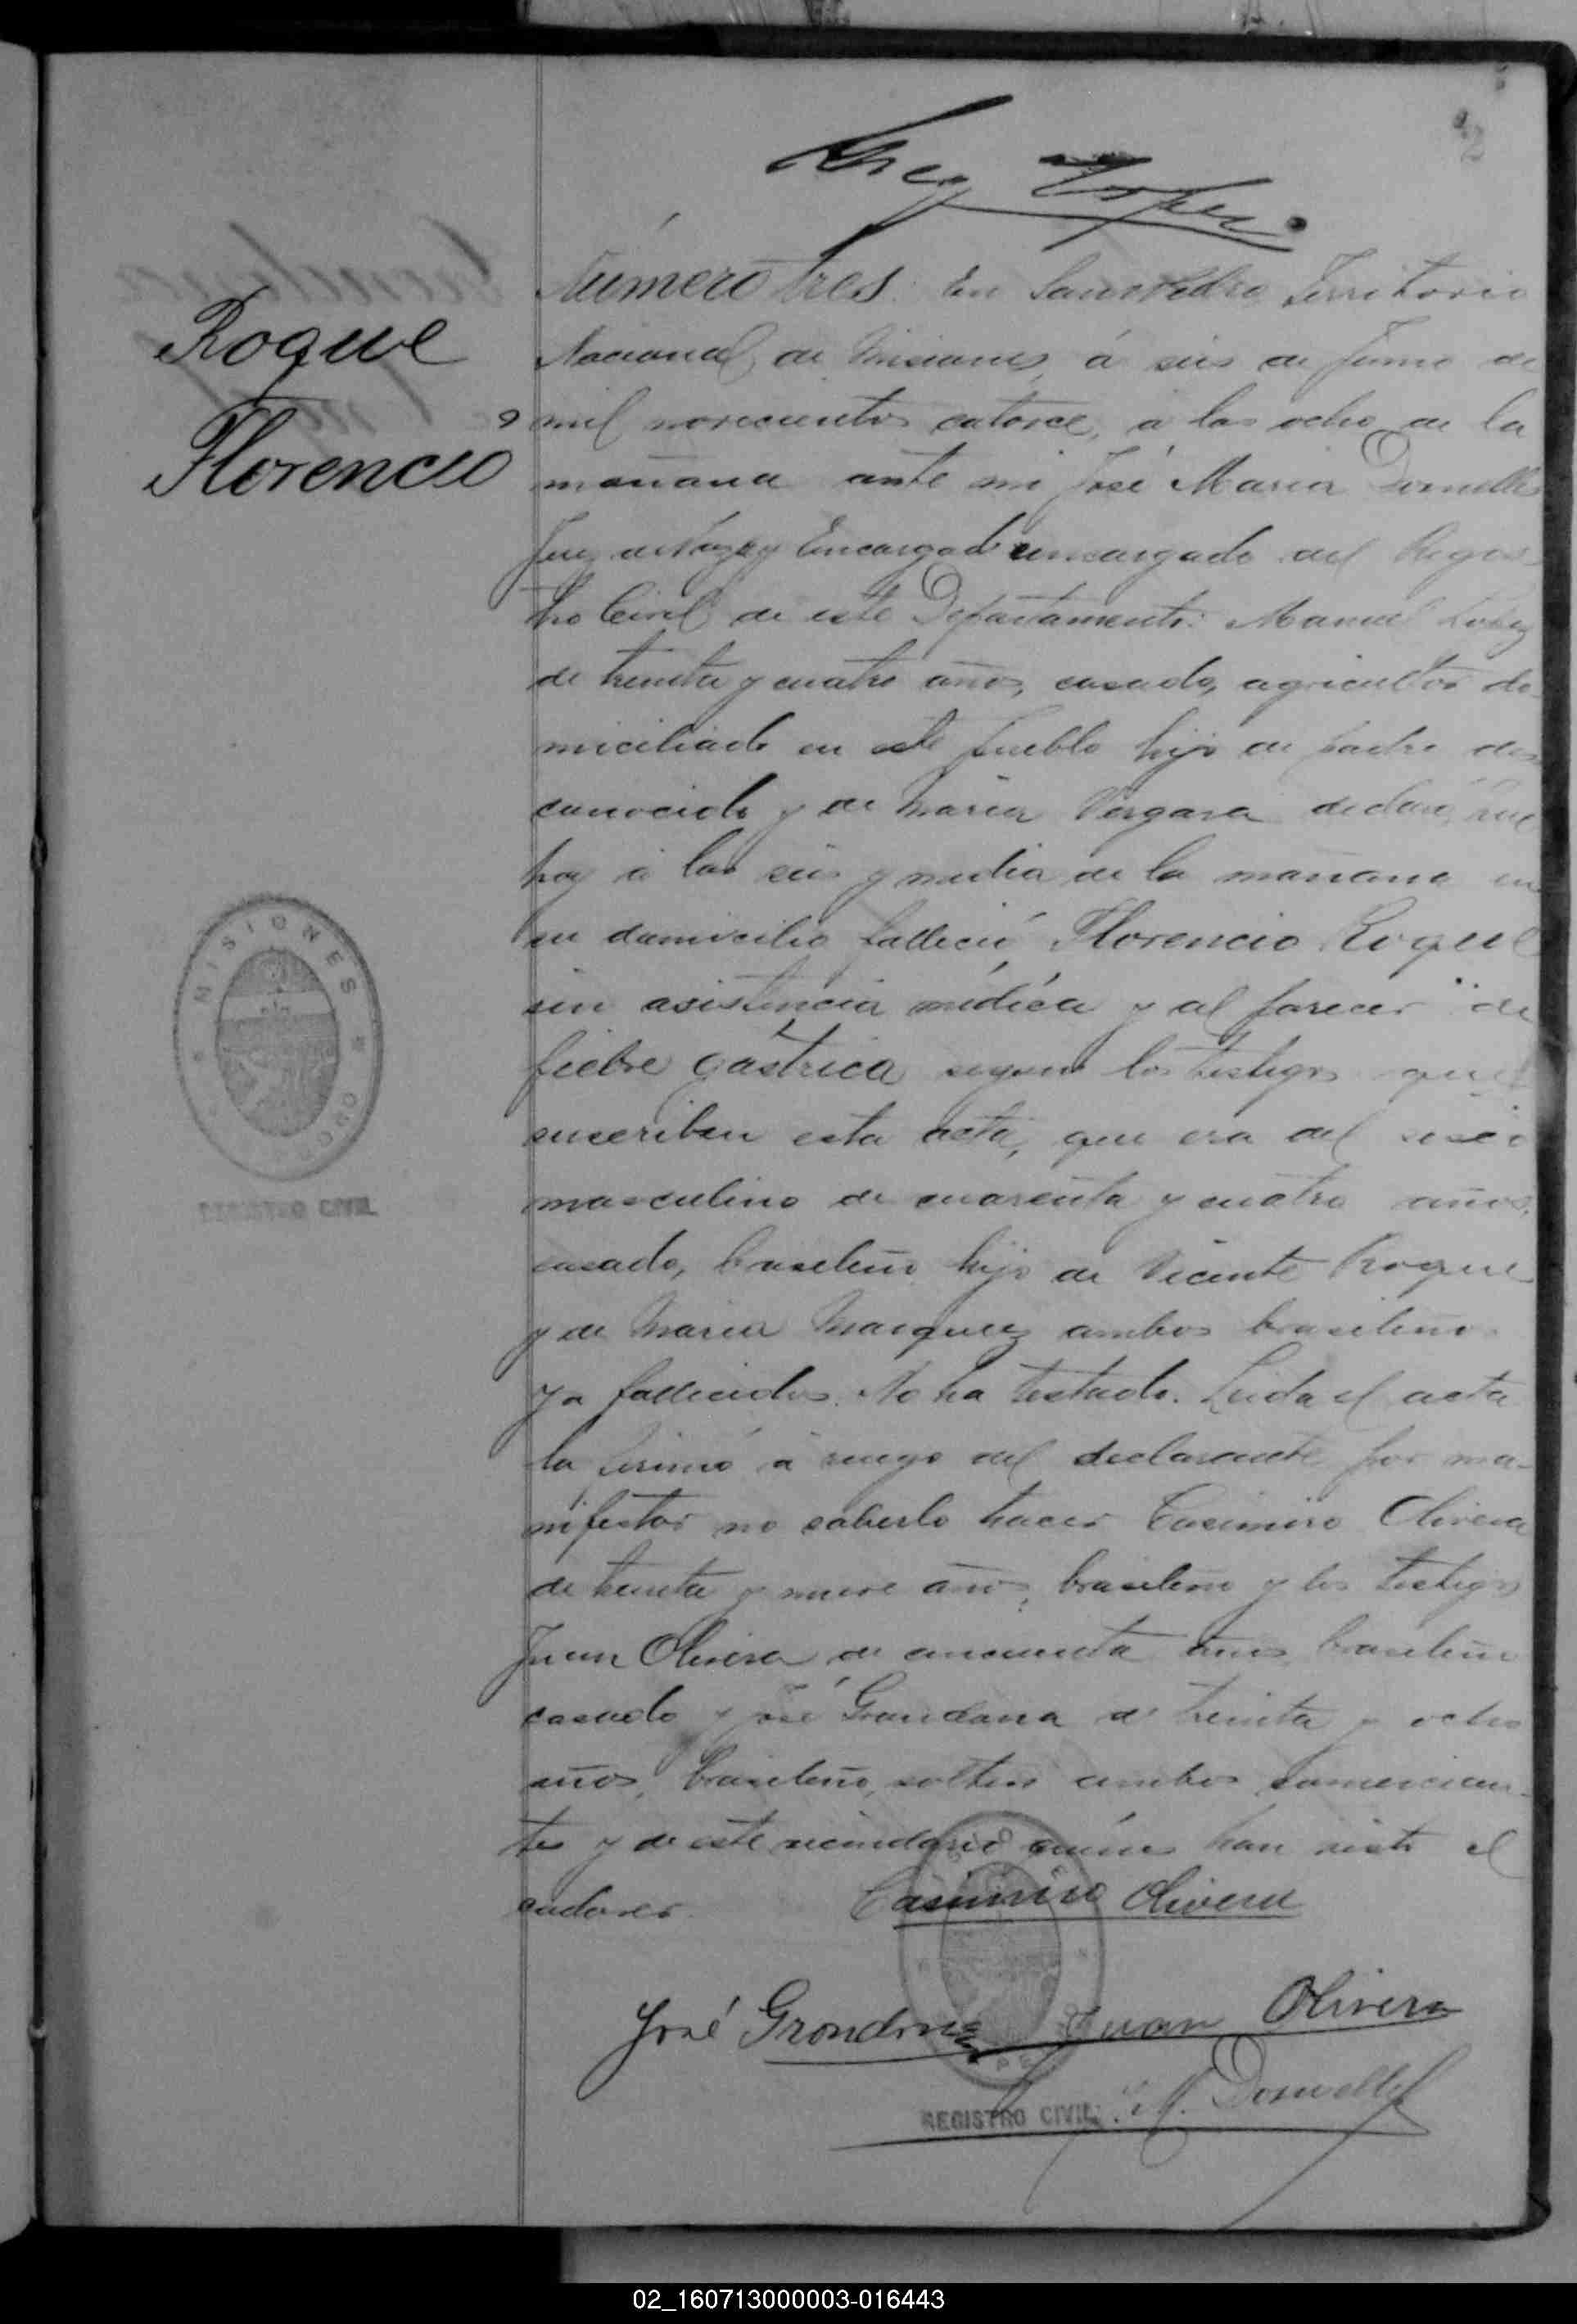 2
Roque
Florencio
Número tres. En San Pedro Territorio
Nacional de Misiones, á seis de Junio de
mil novecientos catorce, á las ocho de la
mañana ante mi José Maria Dornelles
Juez de Paz y Encargado encargado del Regis
tro Civil de este Departamento: Manuel Lopez
de treinta y cuatro años, casado, agricultor do
miciliado en este pueblo hijo de padre des
conocido y de Maria Vergara declaró, que
hoy á las seis y media de la mañana en
su domicilio falleció Florencio Roque
sin asistencia médica y al parecer de
fiebre gástrica segun los testigos que
suscriben esta acta, que era del sexo
masculino de cuarenta y cuatro años,
casado, brasileño hijo de Vicente Roque
y de Maria Marquez ambos brasileños
ya fallecidos. No ha testado. Leida el acta
la firmó á ruego del declarante por ma-
nifestar no saberlo hacer Casimiro Olivera
de treinta y nueve años, brasileño y los testigos
Juan Olivera de cincuenta años brasileño
casado y José Grondona de treinta y ocho
años, brasileño, soltero ambos comercian-
tes y de este vecindario quienes han visto el
cadaver.
Casimiro Olivera
José Grondona Juan Olivera
J. M. Dornelles
MISIONES
REGISTRO CIVIL
REGISTRO CIVIL
02_160713000003-016443